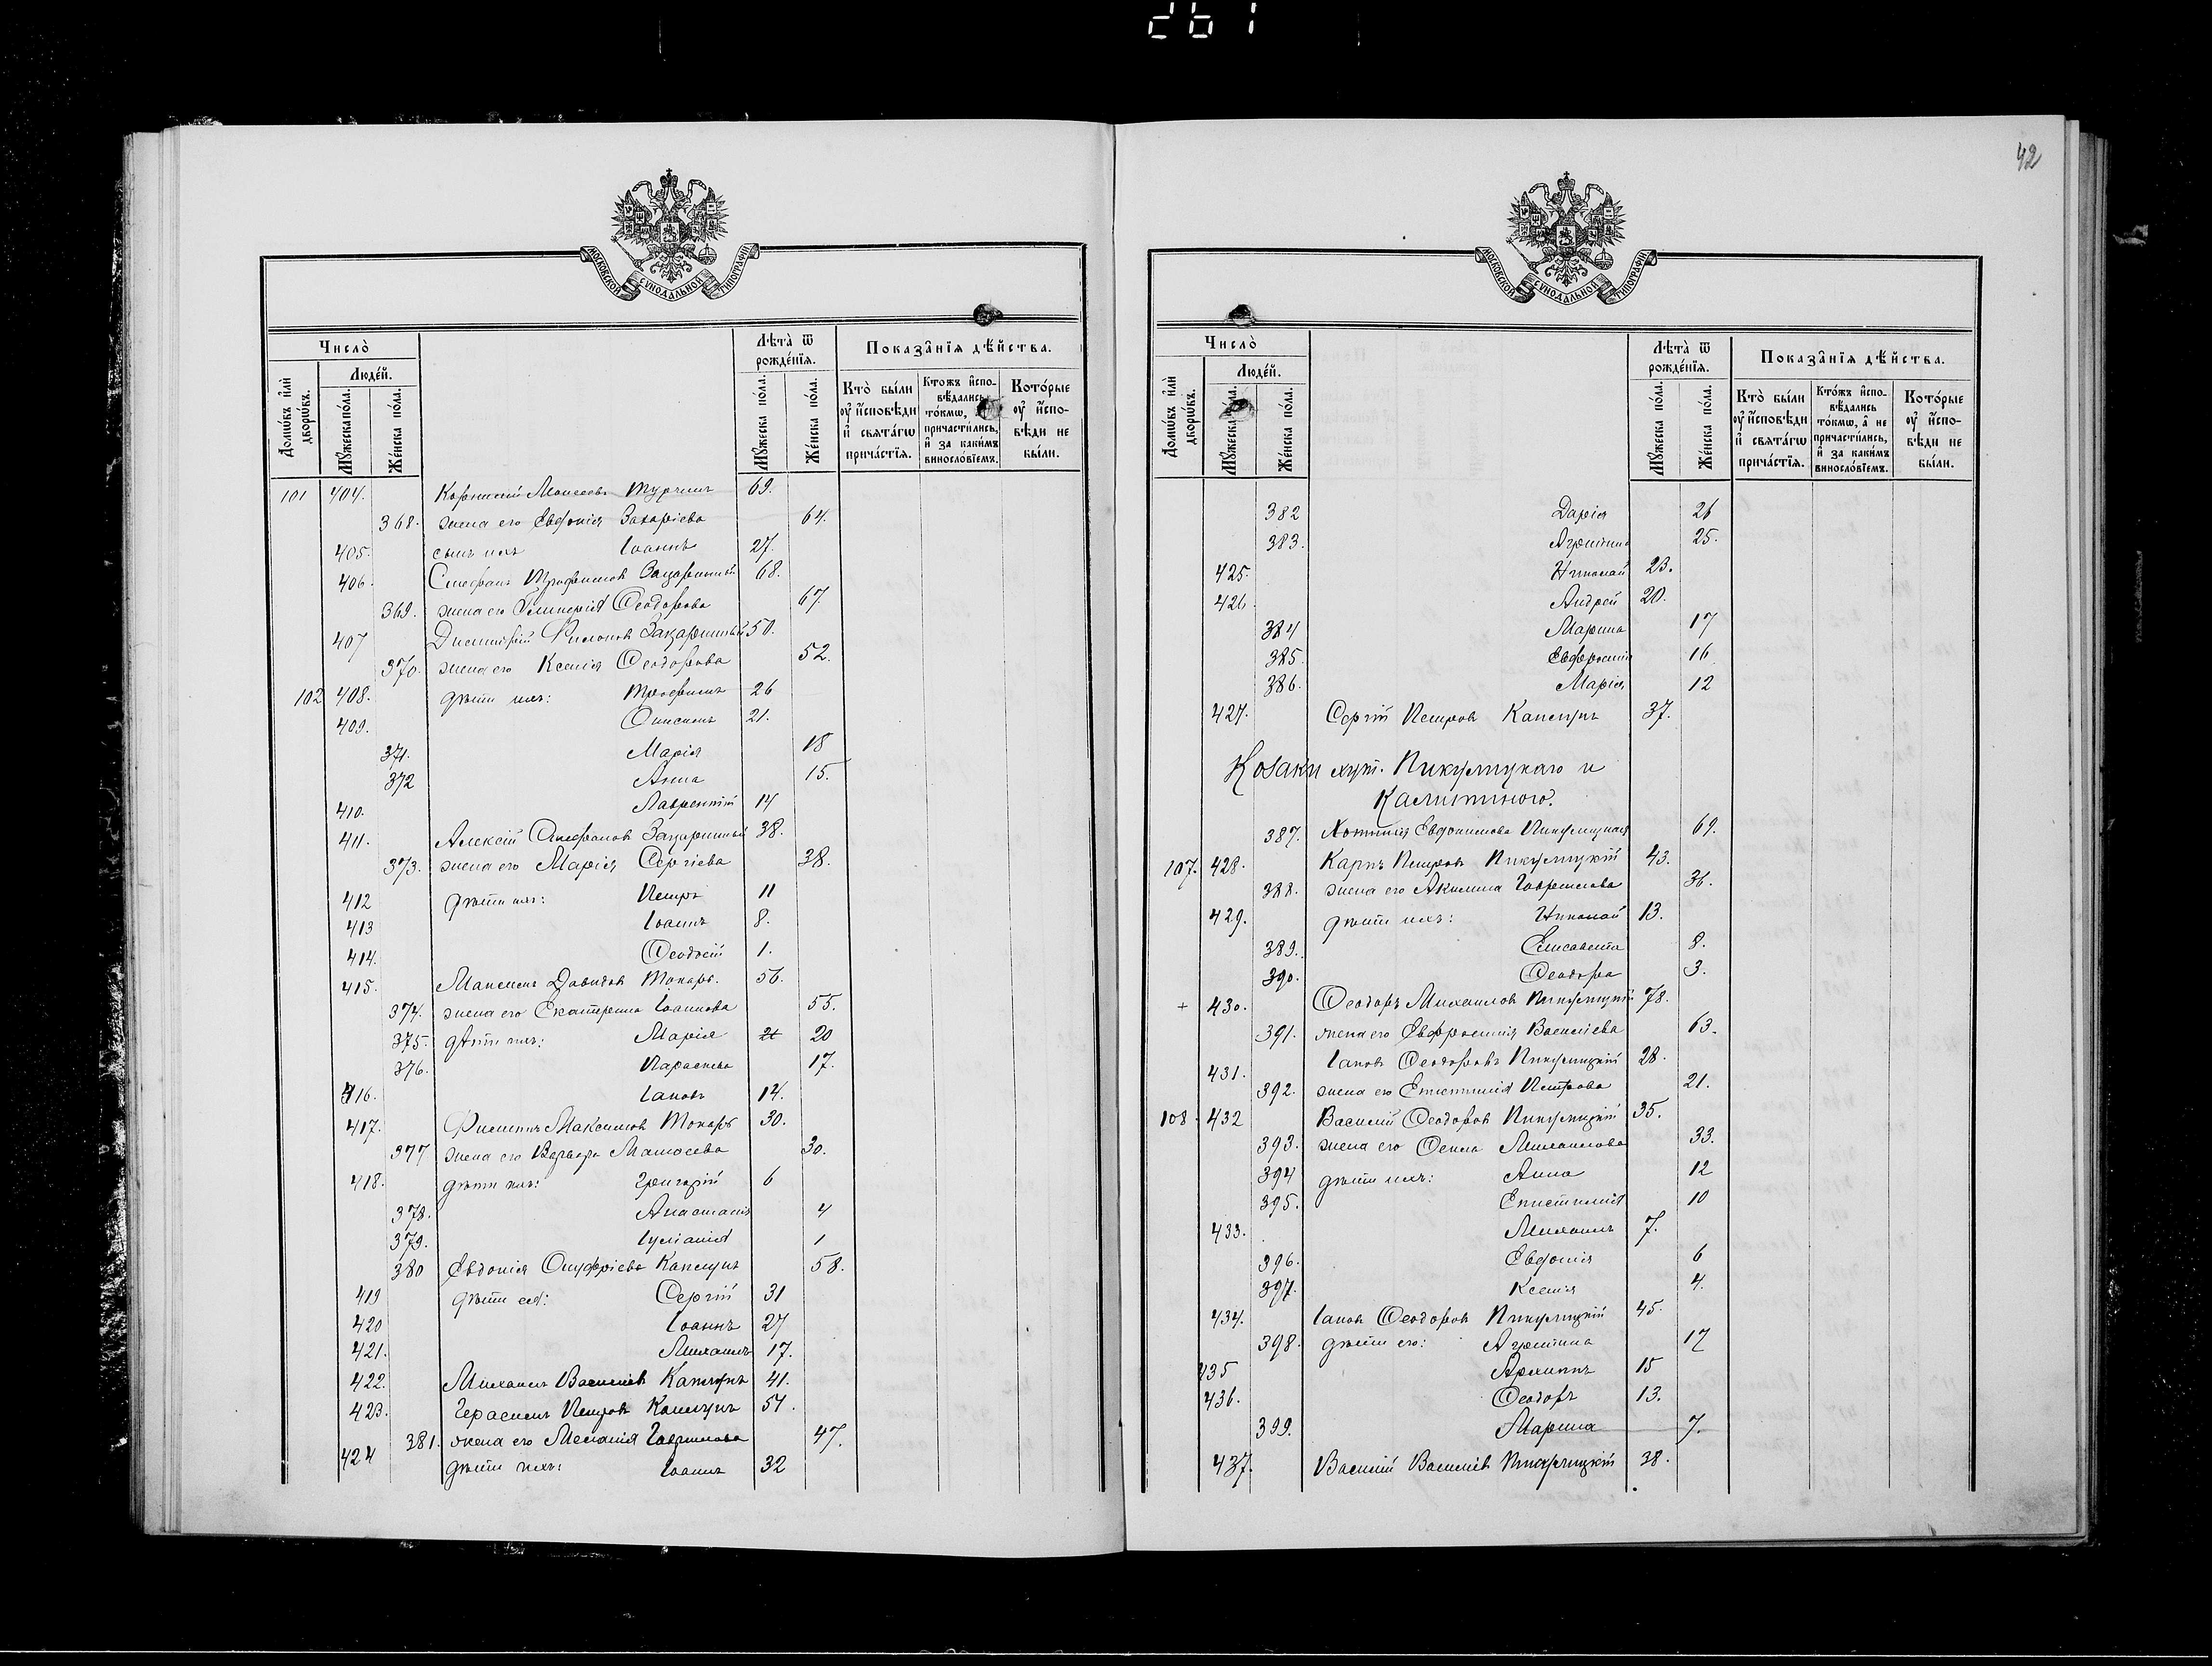 261
42
МОСКОВСКОЙ СѴНОДАЛЬНОЙ ТИПОГРАФІИ
Число̀
Лѣта̀ ѿ рожде́нїѧ.
Показа̑нїѧ дѣ́йства.
Домѡ́въ и҆лѝ дворѡ́въ.
Люде́й.
Мꙋ́жеска по́ла.
Же́нска по́ла.
Мꙋ́жеска по́ла.
Же́нска по́ла.
Кто̀ бы́ли ᲂу҆ и҆́сповѣди и҆ свѧта́гѡ прича́стїѧ.
Кто́жъ и҆спо-вѣ́дались то́кмѡ, причасти́лись, и҆ за каки́мъ виносло́вїемъ.
Кото́рые ᲂу҆ и҆́спо-вѣди не бы́ли.
101 404. Корнилій Моисеевъ Турчинъ 69.
368. жена его Евфимія Захаріева 64.
405. сынъ ихъ Іоаннъ 27.
406. Стефанъ Трофимовъ Зацаринный 68.
369. жена его Гликерія Ѳеодорова 67.
407 Димитрій Филоновъ Зацаринный 50.
370. жена его Ксенія Ѳеодорова 52.
102 408. дѣти ихъ: Трофимъ 26
409. Онисимъ 21.
371. Марія 18
372 Анна 15.
410. Лаврентій 14
411. Алексій Стефановъ Зацаринный 38.
373. жена его Марія Сергіева 38.
412 дѣти ихъ: Петръ 11
413 Іоаннъ 8.
414. Ѳеодосій 1.
415. Максимъ Давидовъ Токарь. 56.
374. жена его Екатерина Іоаннова 55.
375. дѣти ихъ: Марія 21 20
376. Параскева 17.
416. Іаковъ 14.
417. Филиппъ Максимовъ Токарь 30.
377 жена его Варвара Матѳеева 30.
418. дѣти ихъ: Григорій 6
378. Анастасія 4
379. Іуліанія 1
380 Евдокія Онуфріева Каплунъ 58.
419 дѣти ея: Сергій 31
420 Іоаннъ 27
421. Михаилъ 17.
422. Михаилъ Василіевъ Каплунъ 41.
423. Герасимъ Петровъ Каплунъ 54.
381. жена его Меланія Гавриилова 47.
424 дѣти ихъ: Іоаннъ 32
МОСКОВСКОЙ СѴНОДАЛЬНОЙ ТИПОГРАФІИ
Число̀
Лѣта̀ ѿ рожде́нїѧ.
Показа̑нїѧ дѣ́йства.
Домѡ́въ и҆лѝ дворѡ́въ.
Люде́й.
Мꙋ́жеска по́ла.
Же́нска по́ла.
Мꙋ́жеска по́ла.
Же́нска по́ла.
Кто̀ бы́ли ᲂу҆ и҆́сповѣди и҆ свѧта́гѡ прича́стїѧ.
Кто́жъ и҆спо-вѣ́дались то́кмѡ, а҆ не причасти́лись, и҆ за каки́мъ виносло́вїемъ.
Кото́рые ᲂу҆ и҆́спо-вѣди не бы́ли.
382 Дарія 26
383. Агрипина 25.
425. Николай 23.
426. Андрей 20.
384 Марина 17
385. Евфросинія 16
386. Марія 12
427. Сергій Петровъ Каплунъ 37.
Козаки хут. Пикулицкаго и
Калитиного.
387. Евдокимова Пикулицкая 69.
107. 428. Карпъ Петровъ Пикулицкій 43.
388. жена его Акилина Гавриилова 36.
429. дѣти ихъ: Николай 13.
389. Елисавета 8.
390. Ѳеодора 3.
+ 430. Ѳеодоръ Михаиловъ Пикулицкій 78.
391. жена его Евфросинія Василіева 63.
431. Іаковъ Ѳеодоровъ Пикулицкій 28.
392. жена его Епистимія Петрова 21.
108. 432 Василій Ѳеодоровъ Пикулицкій 35.
393. жена его Михаилова 33.
394 дѣти ихъ: Анна 12
395. Епистимія 10
433. Михаилъ 7.
396. Евфимія 6
397. Ксенія 4.
434. Іаковъ Ѳеодоровъ Пикулицкій 45.
398. дѣти его: Агрипина 17
435 Архиппъ 15
436. Ѳеодоръ 13.
399. Марина 7.
437. Василій Василіевъ Пикулицкій 38.